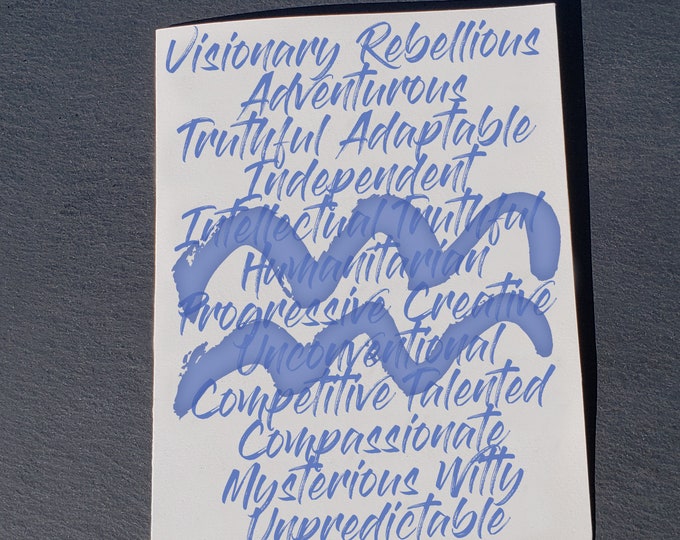 Visionary Rebellious
Adventurous
Truthful Adaptable
Independent
Intellectual Truthful
Humanitarian
Progressive Creative
Unconventional
Competitive Talented
Compassionate
Mysterious Witty
Unpredictable